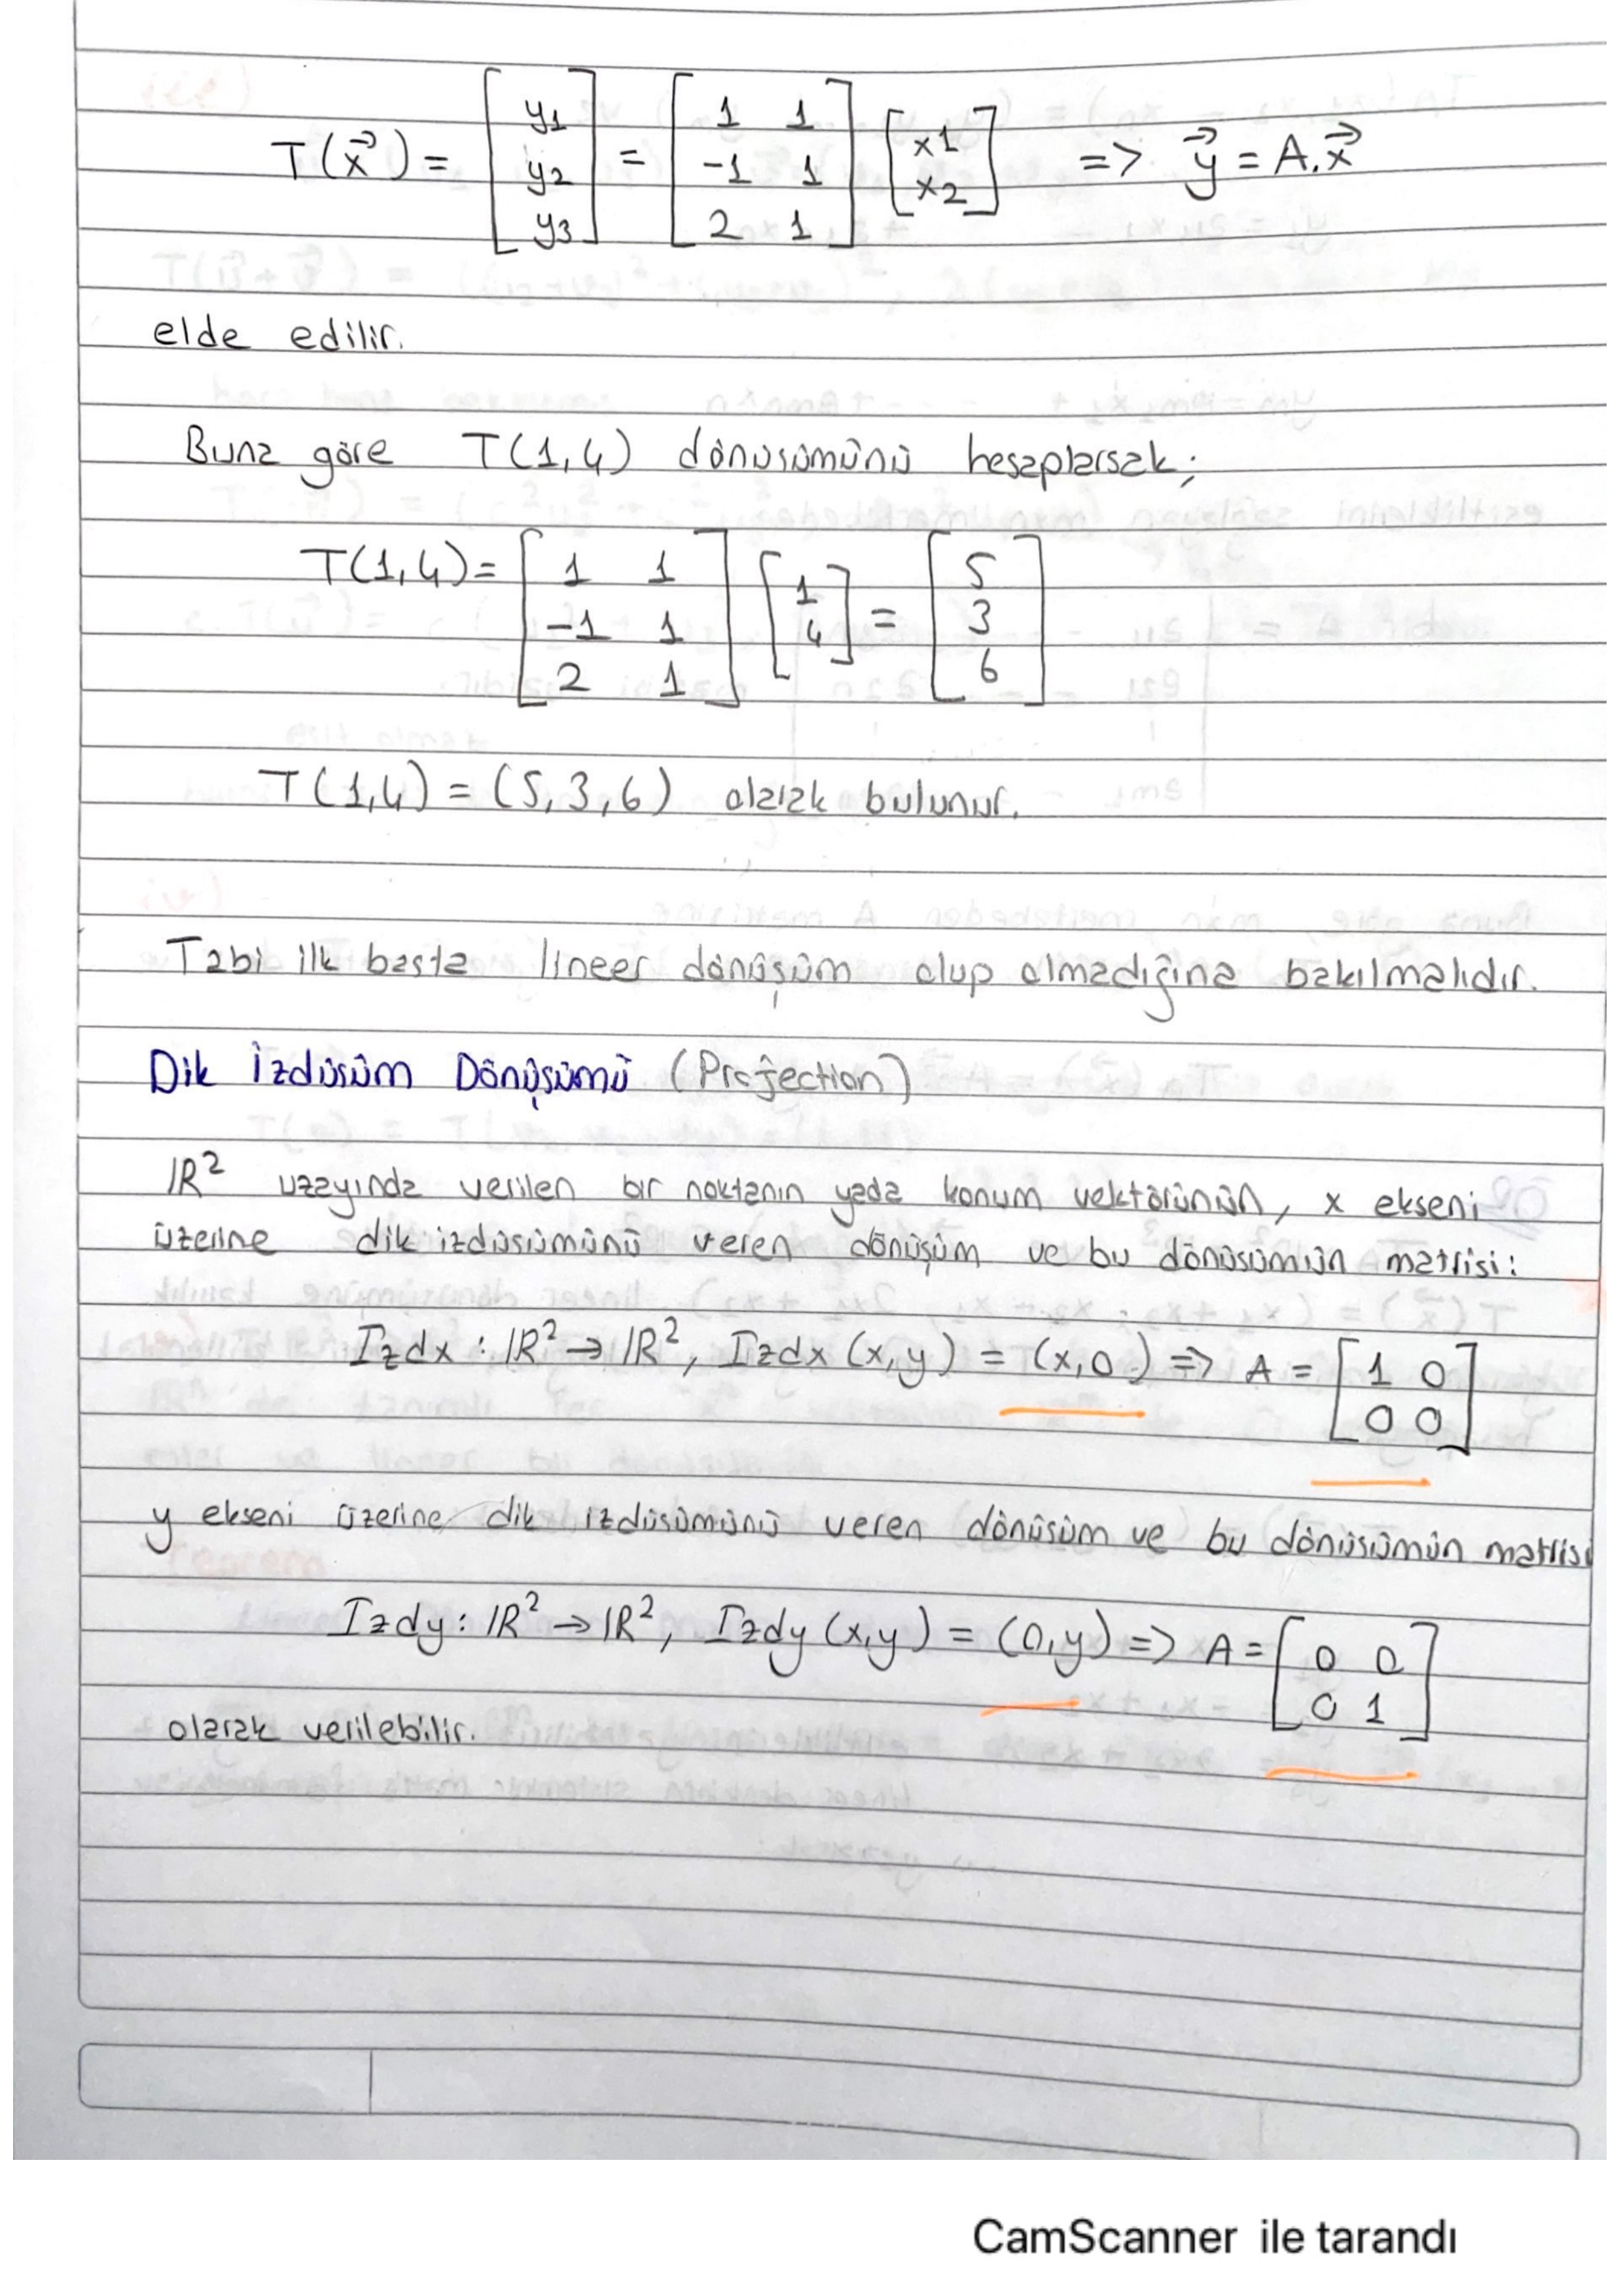 T(x⃗) = [y1 y2 y3] = [1 1 -1 1 2 1] [x1 x2] => y⃗ = A.x⃗
elde edilir.
Buna göre T(1,4) dönüsümünü hesaplarsak;
T(1,4) = [1 1 -1 1 2 1] [1 4] = [5 3 6]
T(1,4) = (5,3,6) olarak bulunur.
Tabi ilk basta lineer dönüşüm olup olmadığına bakılmalıdır.
Dik İzdüsüm Dönüşümü (Projection)
IR² uzayında verilen bir noktanın yada konum vektörünün, x ekseni
üzerine dik izdüsümünü veren dönüşüm ve bu dönüsümün matrisi:
Izdx : IR² → IR², Izdx (x,y) = (x,0) => A = [1 0 0 0]
y ekseni üzerine dik izdüsümünü veren dönüsüm ve bu dönüsümün matrisi
Izdy : IR² → IR², Izdy (x,y) = (0,y) => A = [0 0 0 1]
olarak verilebilir.
CamScanner ile tarandı